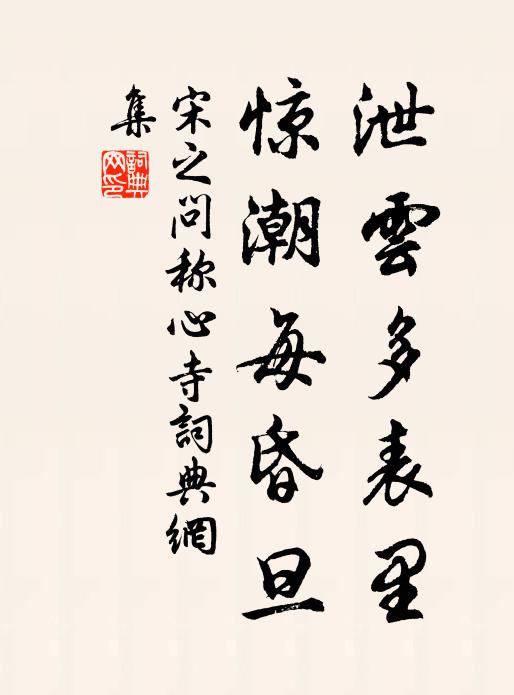 泄雲多表里
惊潮每昏旦
宋之问称心寺詞典網
集
詞典網印